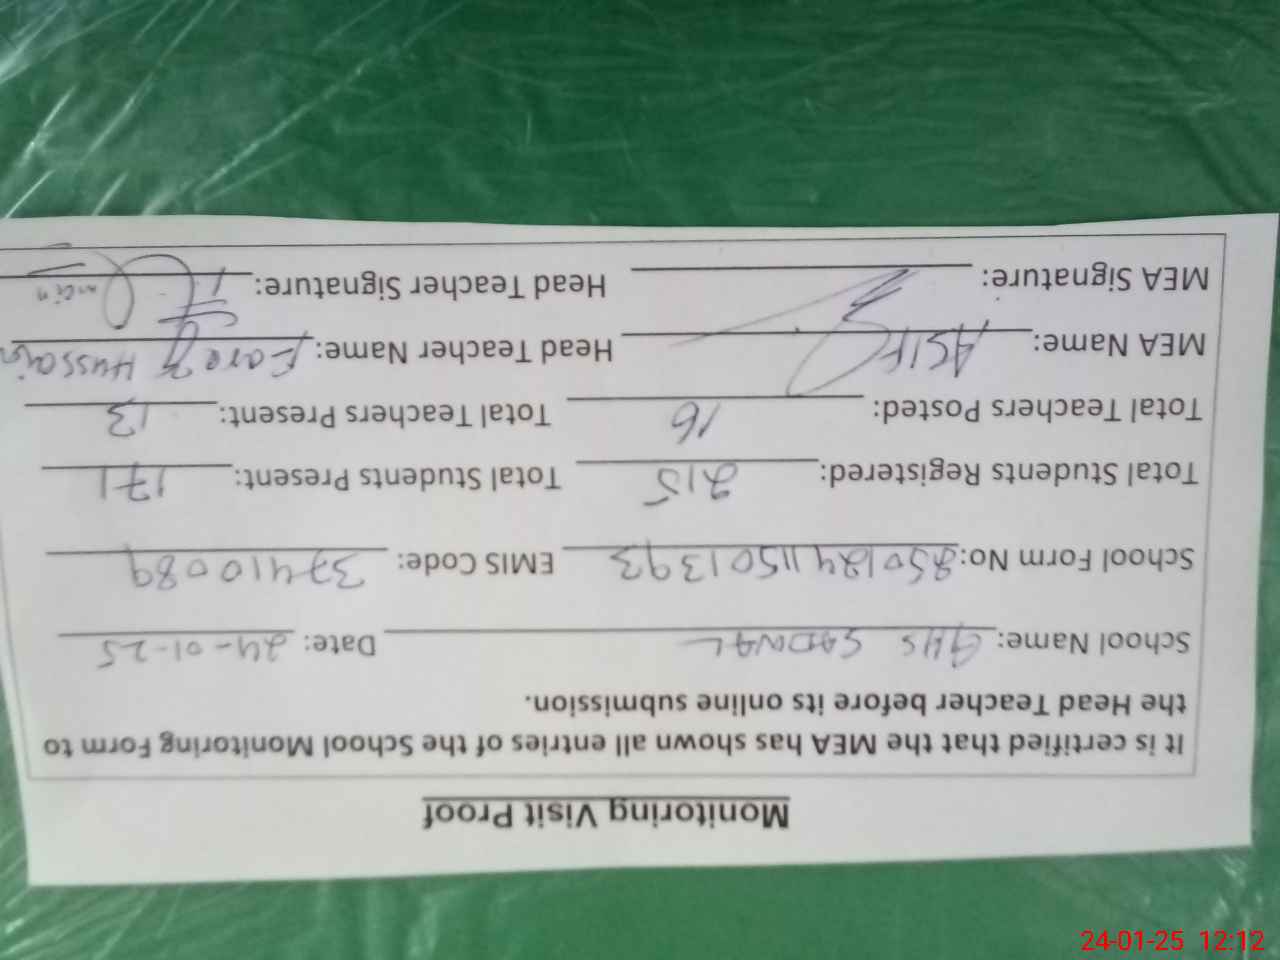 Monitoring Visit Proof
It is certified that the MEA has shown all entries of the School Monitoring Form to
the Head Teacher before its online submission.
School Name: GHS SADWAL Date: 24-01-25
School Form No: 25012411501393 EMIS Code: 37410089
Total Students Registered: 215 Total Students Present: 171
Total Teachers Posted: 16 Total Teachers Present: 13
MEA Name: ASIF Head Teacher Name: Hussain
MEA Signature: Head Teacher Signature:
24-01-25 12:12